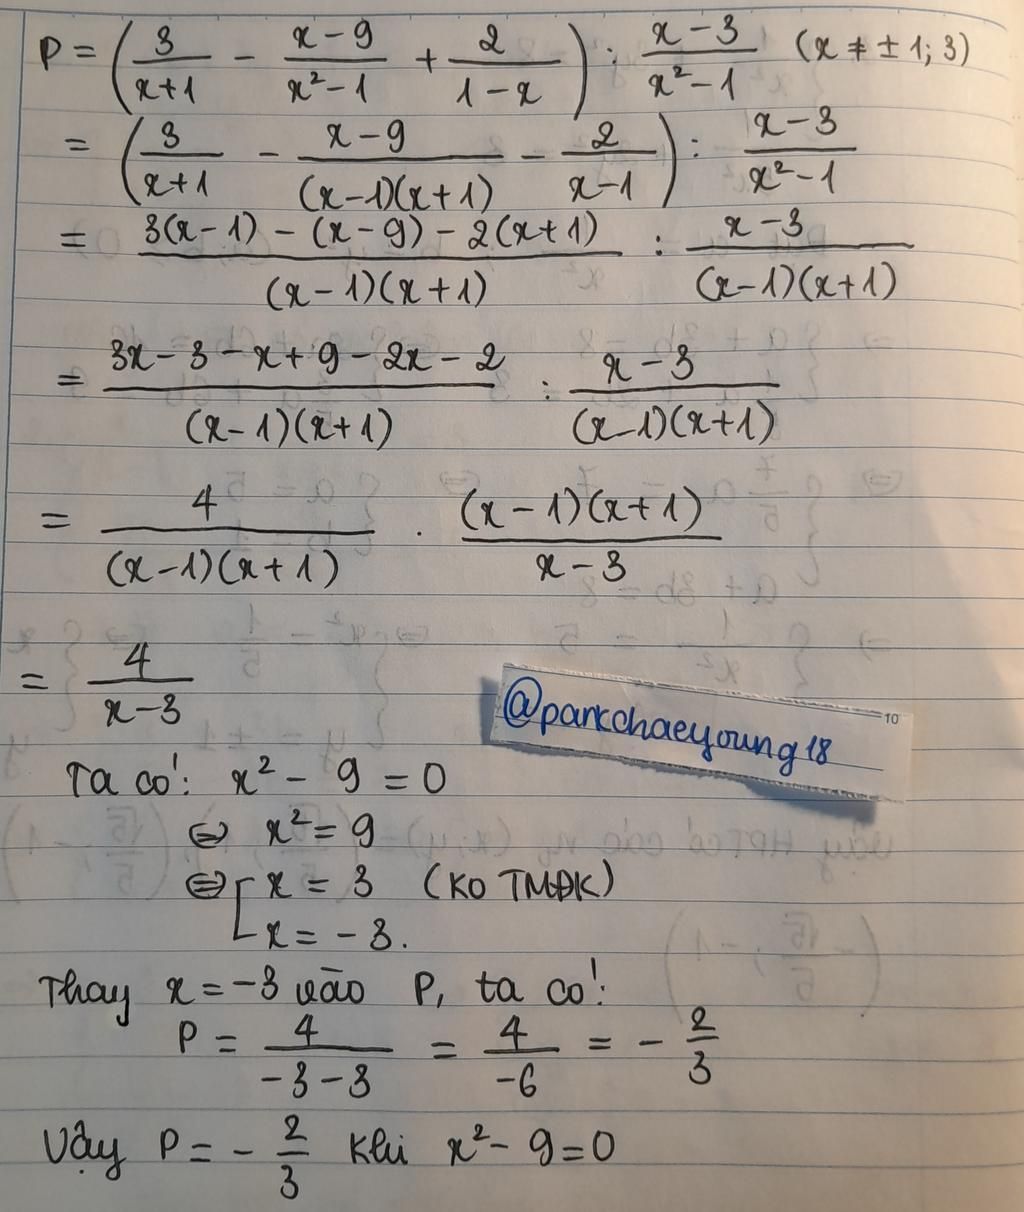 P = (3/(x+1) - (x-9)/(x²-1) + 2/(1-x)) : (x-3)/(x²-1) (x ≠ ±1; 3)
= (3/(x+1) - (x-9)/((x-1)(x+1)) - 2/(x-1)) : (x-3)/(x²-1)
= (3(x-1) - (x-9) - 2(x+1))/((x-1)(x+1)) : (x-3)/((x-1)(x+1))
= (3x - 3 - x + 9 - 2x - 2)/((x-1)(x+1)) : (x-3)/((x-1)(x+1))
= 4/((x-1)(x+1)) . ((x-1)(x+1))/(x-3)
= 4/(x-3)
@parkchaeyoung18
10
Ta có: x² - 9 = 0
⇔ x² = 9
⇔ [ x = 3 (KO TMĐK)
x = -3.
Thay x = -3 vào P, ta có:
P = 4/(-3-3) = 4/(-6) = - 2/3
Vậy P = - 2/3 khi x² - 9 = 0